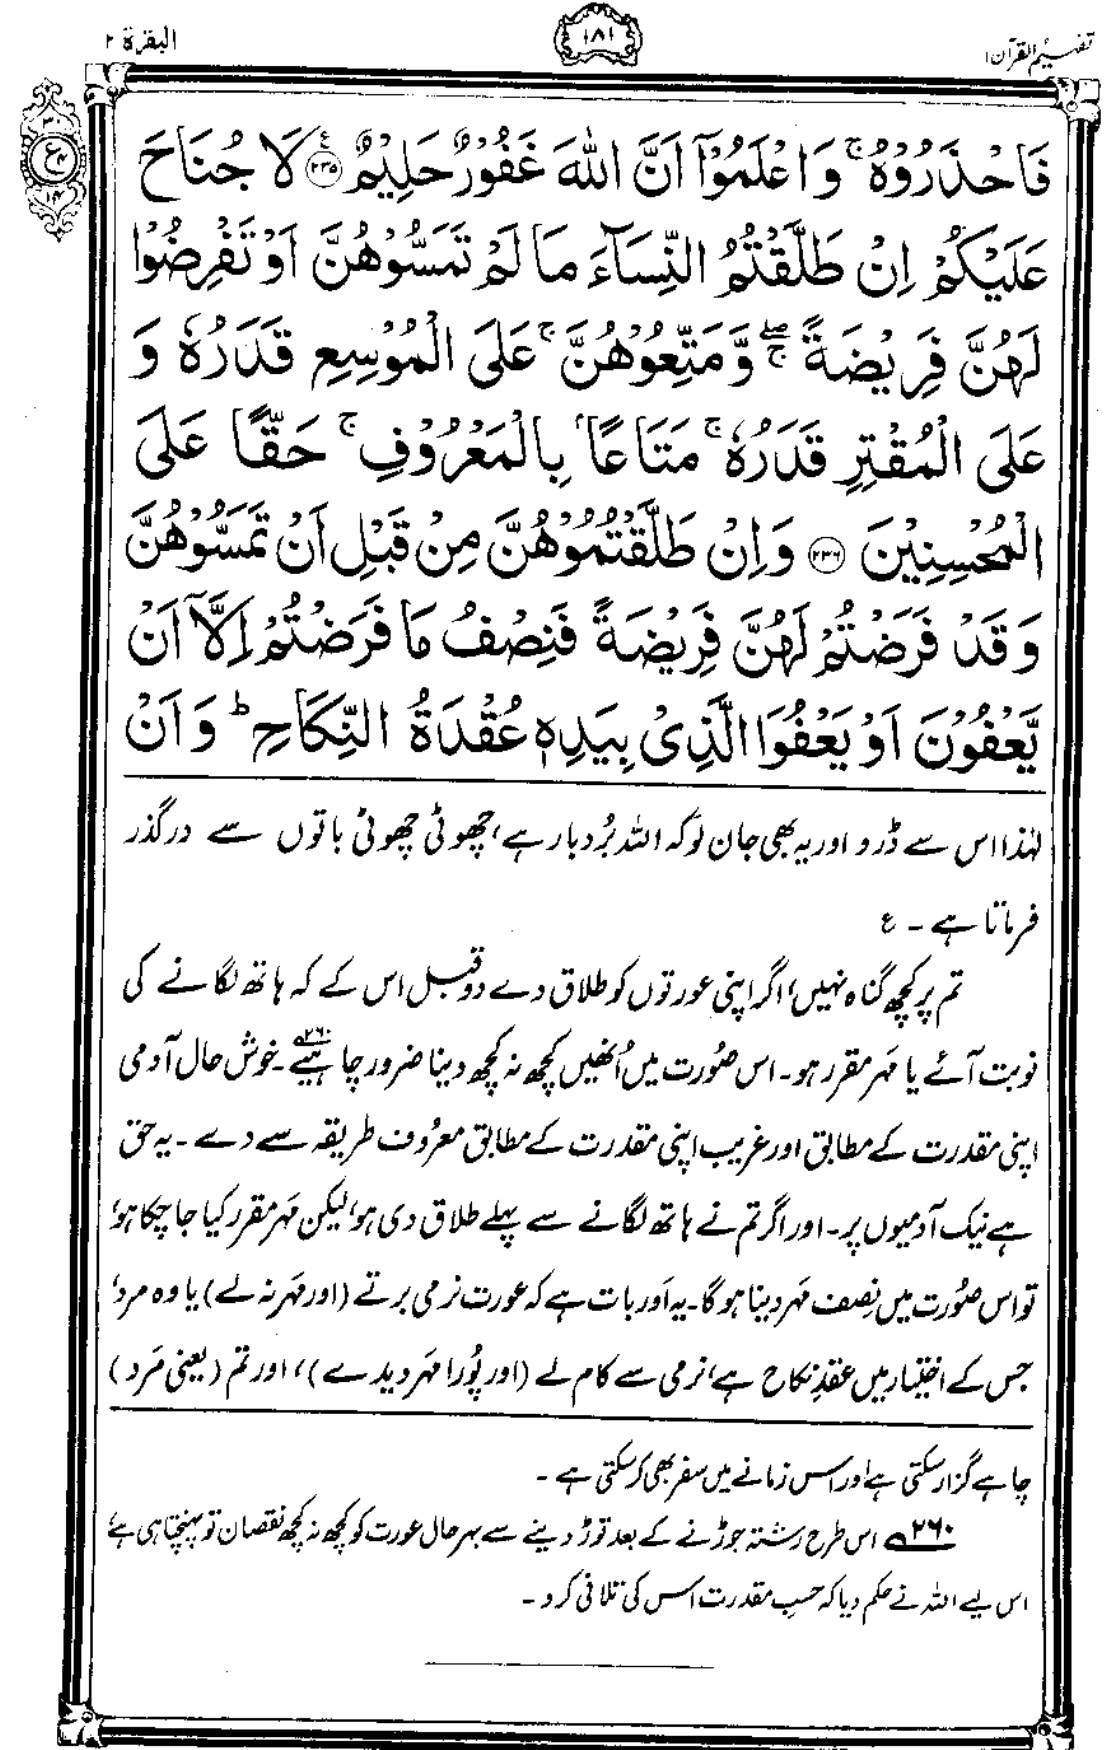 تفہیم القرآن ۱
۱۸۱
البقرۃ ۲
۳۰
ع
۱۴
فَاحْذَرُوْهُ ۚ وَاعْلَمُوْٓا اَنَّ اللّٰهَ غَفُوْرٌ حَلِيْمٌ ﴿۲۳۵﴾ ع لَا جُنَاحَ
عَلَيْكُمْ اِنْ طَلَّقْتُمُ النِّسَآءَ مَا لَمْ تَمَسُّوْهُنَّ اَوْ تَفْرِضُوْا
لَهُنَّ فَرِيْضَةً ۖۚ وَّمَتِّعُوْهُنَّ ۚ عَلَى الْمُوْسِعِ قَدَرُهٗ وَ
عَلَى الْمُقْتِرِ قَدَرُهٗ ۚ مَتَاعًاۢ بِالْمَعْرُوْفِ ۚ حَقًّا عَلَى
الْمُحْسِنِيْنَ ﴿۲۳۶﴾ وَاِنْ طَلَّقْتُمُوْهُنَّ مِنْ قَبْلِ اَنْ تَمَسُّوْهُنَّ
وَقَدْ فَرَضْتُمْ لَهُنَّ فَرِيْضَةً فَنِصْفُ مَا فَرَضْتُمْ اِلَّآ اَنْ
يَّعْفُوْنَ اَوْ يَعْفُوَا الَّذِىْ بِيَدِهٖ عُقْدَةُ النِّكَاحِ ؕ وَاَنْ
لہٰذا اس سے ڈرو اور یہ بھی جان لو کہ اللہ بُردبار ہے، چھوٹی چھوٹی باتوں سے درگذر
فرماتا ہے۔ ع
تم پر کچھ گناہ نہیں، اگر اپنی عورتوں کو طلاق دے دو قبل اس کے کہ ہاتھ لگانے کی
نوبت آئے یا مَہر مقرر ہو۔ اس صُورت میں اُنھیں کچھ نہ کچھ دینا ضرور چاہیے۲۶۰۔ خوش حال آدمی
اپنی مقدرت کے مطابق اور غریب اپنی مقدرت کے مطابق معرُوف طریقہ سے دے۔ یہ حق
ہے نیک آدمیوں پر۔ اور اگر تم نے ہاتھ لگانے سے پہلے طلاق دی ہو، لیکن مَہر مقرر کیا جا چکا ہو،
تو اس صُورت میں نِصف مَہر دینا ہوگا۔ یہ اَور بات ہے کہ عورت نرمی برتے (اور مَہر نہ لے) یا وہ مرد،
جس کے اختیار میں عقدِ نکاح ہے، نرمی سے کام لے (اور پُورا مَہر دیدے)، اور تم (یعنی مَرد)
چاہے گزار سکتی ہے اور اس زمانے میں سفر بھی کر سکتی ہے۔
۲۶۰ اس طرح رشتہ جوڑنے کے بعد توڑ دینے سے بہرحال عورت کو کچھ نہ کچھ نقصان تو پہنچتا ہی ہے،
اس لیے اللہ نے حکم دیا کہ حسبِ مقدرت اس کی تلافی کرو۔